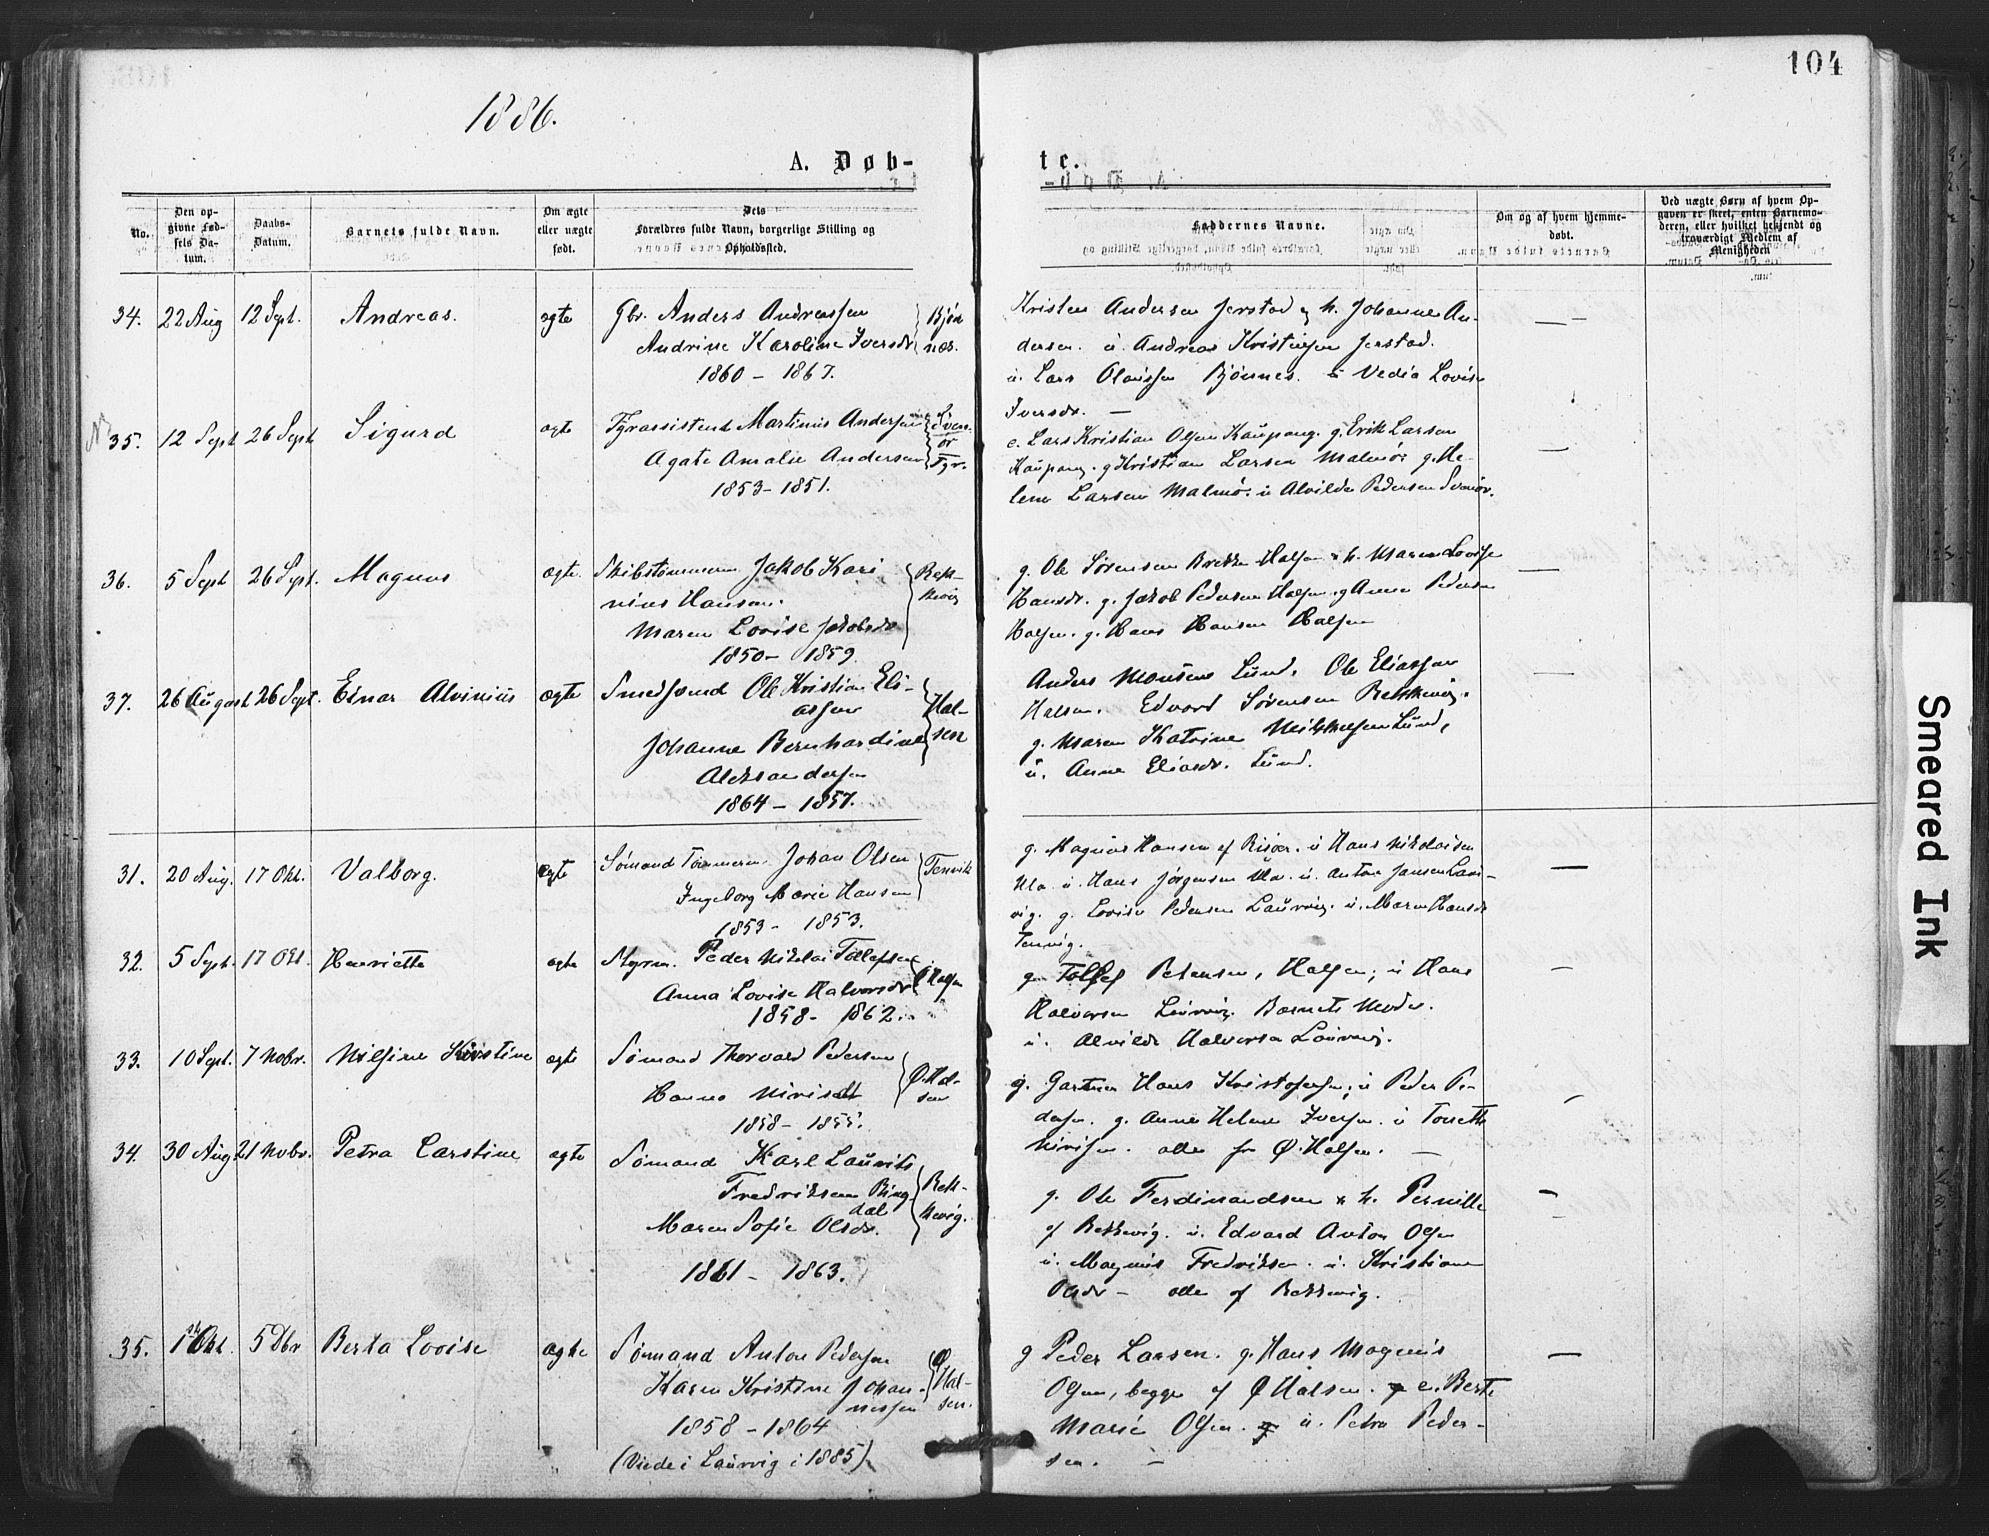 104
1886.
A. Døb-
te.
No.
Den opgivne Fødsels Datum.
Daabs-Datum.
Barnets fulde Navn.
Om ægte eller uægte født.
Dets Forældres fulde Navn, borgerlige Stilling og Opholdssted.
Faddernes Navne.
Om og af hvem hjemmedøbt.
Ved uægte Børn af hvem Opgaven er skeet, enten Barnemoderen, eller hvilket bekjendt og troværdigt Medlem af Menigheden
34. 22 Aug 12 Sept. Andreas. ægte Gbr. Anders Andreassen
Andrine Karoline Iversdr
Bjønnæs.
1860 – 1867.
Kristen Andersen Jerstad og h. Johanne An-
dersen. u. Andreas Kristensen Jerstad.
u. Lars Olaussen Bjønnes. u Vedia Lovise
Iversdr. —
35. 12 Sept 26 Sept Sigurd ægte Fyrassistent Martinus Andersen
Agate Amalie Andersen
Svenør Fyr.
1853 – 1851.
e. Lars Kristian Olsen Kaupang. g. Erik Larsen
Kaupang. g Kristian Larsen Malmø. g. He-
lene Larsen Malmø. u Alvilde Pedersen Svenør.
36. 5 Sept 26 Sept. Magnus ægte. Skibstømmerm Jakob Kari
nius Hansen.
Maren Lovise Jakobsdr
Rekkevig
1850 – 1859.
g. Ole Sørensen Brekke Halsen & h. Maren Lovise
Hansdr. g. Jakob Pedersen Halsen. g Anne Pedersen
Halsen. g. Hans Hansen Halsen
37. 26 August 26 Sept. Einar Alvinius ægte Smedsvend Ole Kristian Eli-
assen
Johanne Bernhardine
Aleksandersen
Halsen
1864 – 1857.
Anders Monsens Lund. Ole Eliassen
Halsen. Edvard Sørensen Rekkevig.
g. Maren Katrine Lund,
u. Anne Eliasdr. Lund.
31. 20 Aug. 17 Okt. Valborg. ægte Sømand Tømmerm. Johan Olsen
Ingeborg Marie Hansen
Tenvik
1853 – 1853.
g. Magnus Hansen af Risøer. u Hans Nikolaisen
Ula. u. Hans Jørgensen Ula. u. Anton Jansen Laur-
vig. g. Lovise Pedersen Laurvig. u. Maren Hansdr
Tenvig.
32. 5 Sept. 17 Okt. Henriette ægte Styrm. Peder Nikolai Tollefsen
Anna Lovise Halvorsdr
Ø Halsen
1858 – 1862.
g. Tollef Petersen, Halsen; u Hans
Halvorsen Laurvig. Barnets Moder.
u. Alvilde Halvorsen Laurvig.
33. 10 Sept. 7 Nobr. Nilsine Kristine ægte Sømand Thorvald Pedersen
Hanna
Ø. Halsen
1858 – 1855.
g. Gartner Hans Kristofersen; u Peder Pe-
dersen. g. Anne Helene Iversen. u
alle fra Ø. Halsen. —
34. 30 Aug 21 Nobr. Petra Carstine ægte Sømand Karl Laurits
Fredriksen Ring-
dal
Maren Sofie Olsdr.
Rekkevig.
1861 – 1863.
g. Ole Ferdinandsen & h. Pernille
af Rekkevig. u. Edvard Anton Olsen
u. Magnus Fredriksen. u. Kristiane
Olsdr – alle af Rekkevig.
35. 1ste Okt. 5 Dbr Berta Lovise ægte Sømand Anton Pedersen
Karen Kristine Johan-
nessen
Ø Halsen.
1858 – 1864
(Viede i Laurvig i 1885)
g Peder Larsen. g. Hans Magnus
Olsen, begge af Ø Halsen. e. Berte
Marie Olsen. u. Petra Peder-
sen. —
Smeared Ink